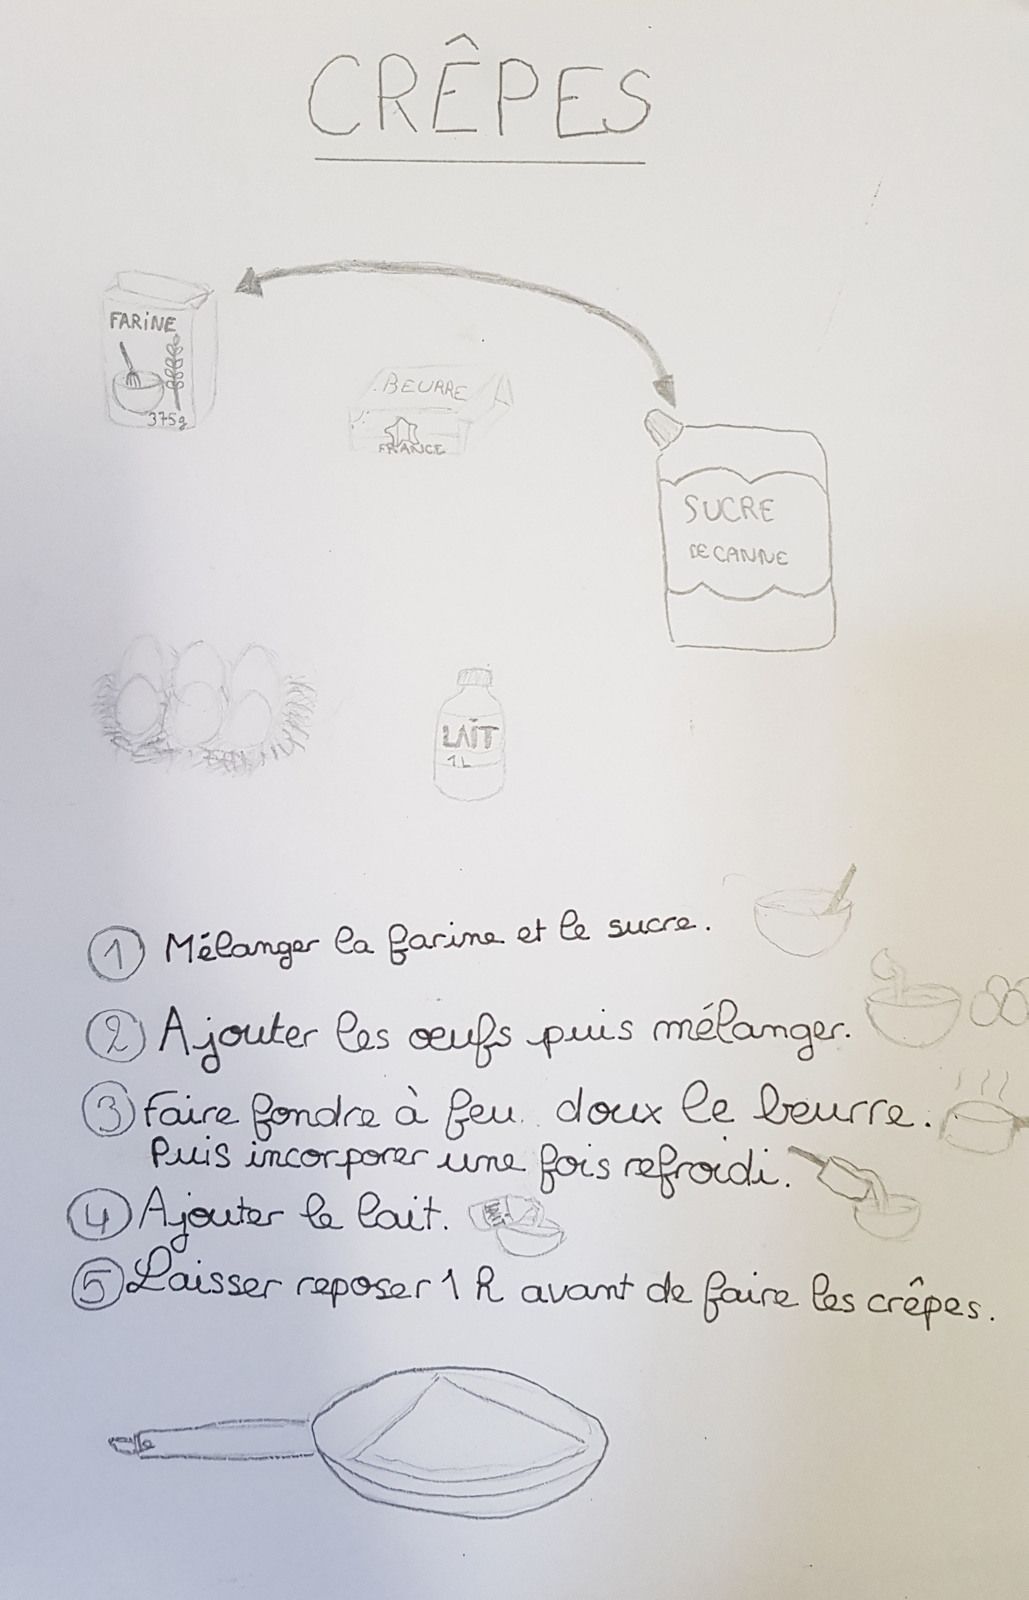 CRÊPES
FARINE
375g
BEURRE
FRANCE
SUCRE
DE CANNE
LAIT
1L
1 Mélanger la farine et le sucre.
2 Ajouter les œufs puis mélanger.
3 Faire fondre à feu doux le beurre.
Puis incorporer une fois refroidi.
4 Ajouter le lait.
5 Laisser reposer 1 h avant de faire les crêpes.